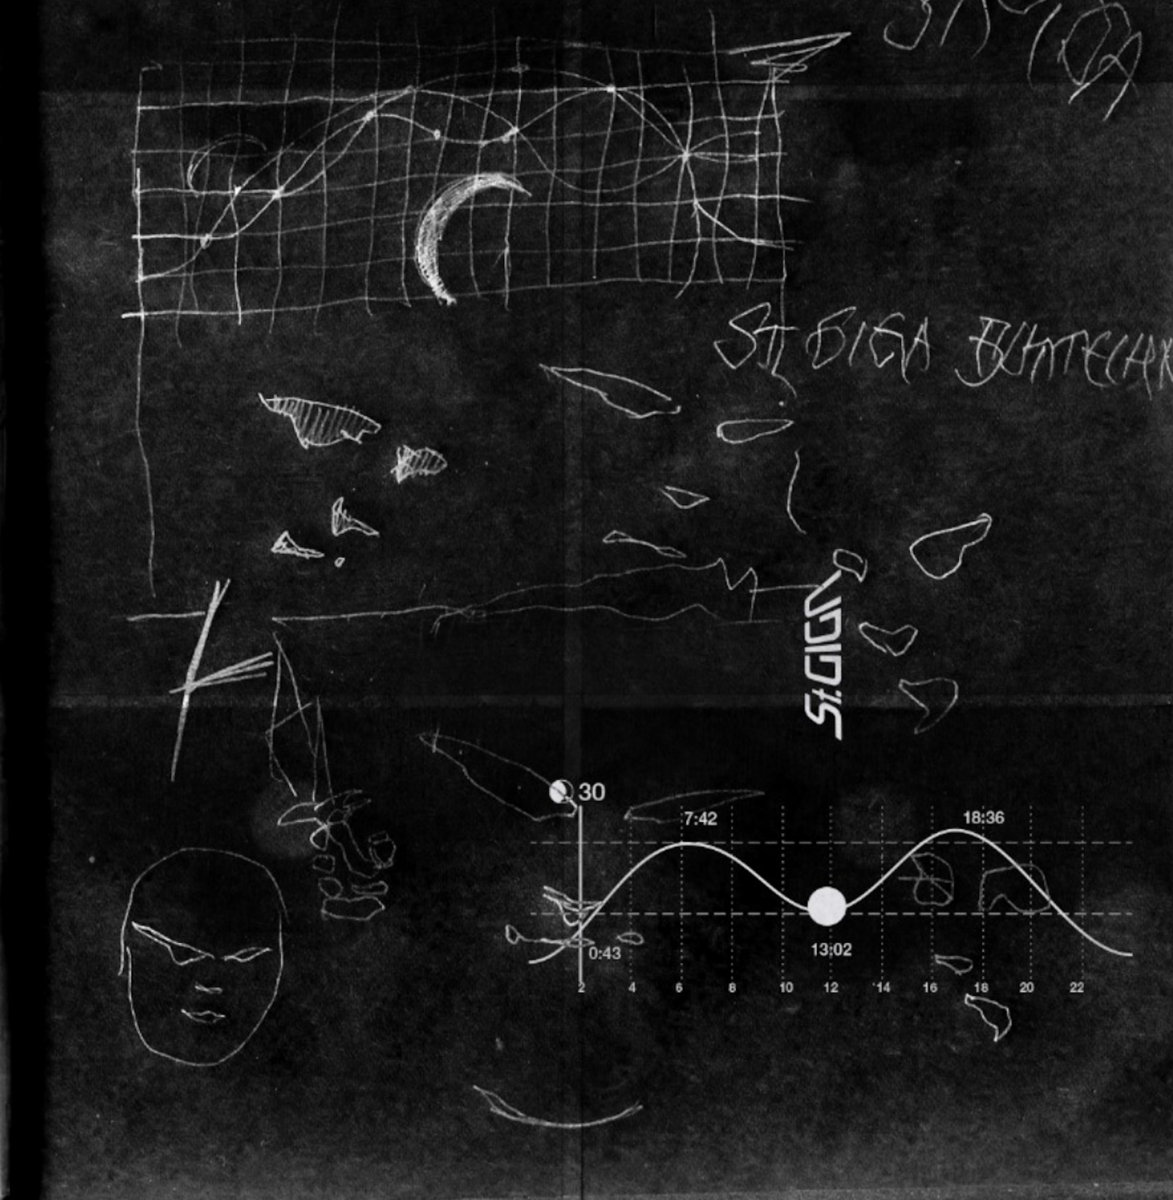 St GIGA
St.GIGA
30
7:42 18:36
0:43 13:02
2 4 6 8 10 12 14 16 18 20 22